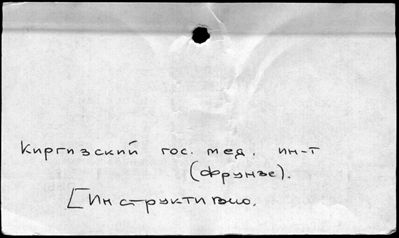 Киргизский гос. мед. ин-т
(Фрунзе).
[Инструктивно.